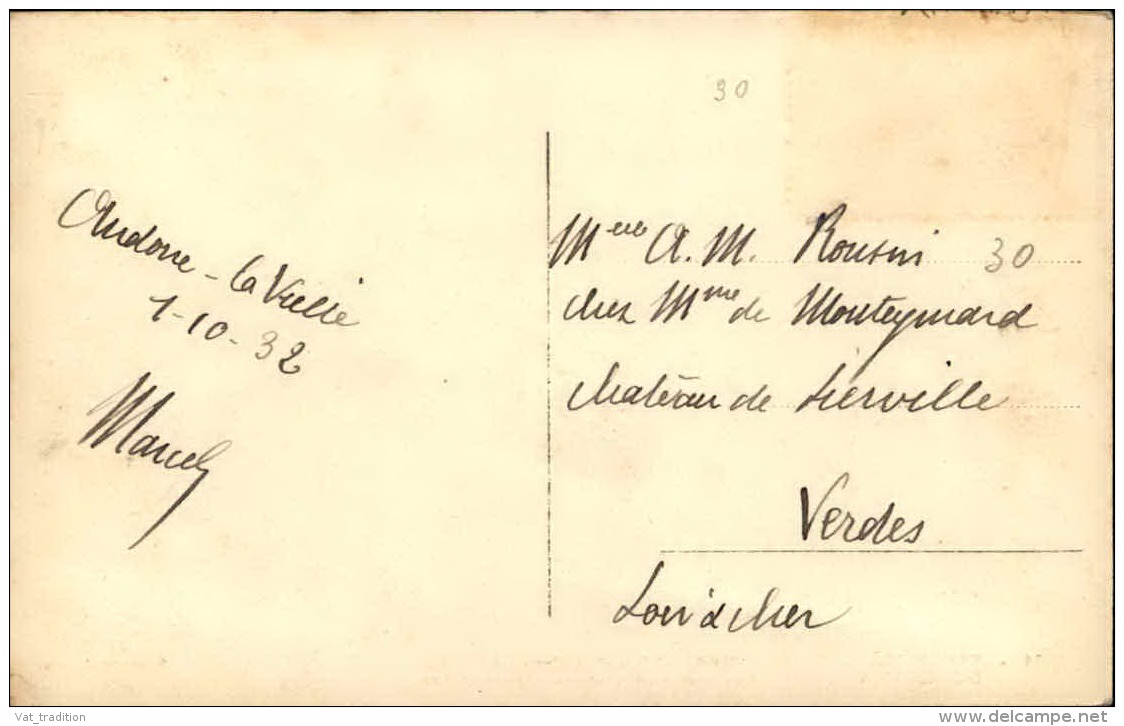 30
Andorre - la Vieille
1-10-32
Marcel
Melle A. M. Rousin 30
chez Mme de Monteynard
chateau de Lierville
Verdes
Loir & Cher
Vat_tradition
delcampe.net